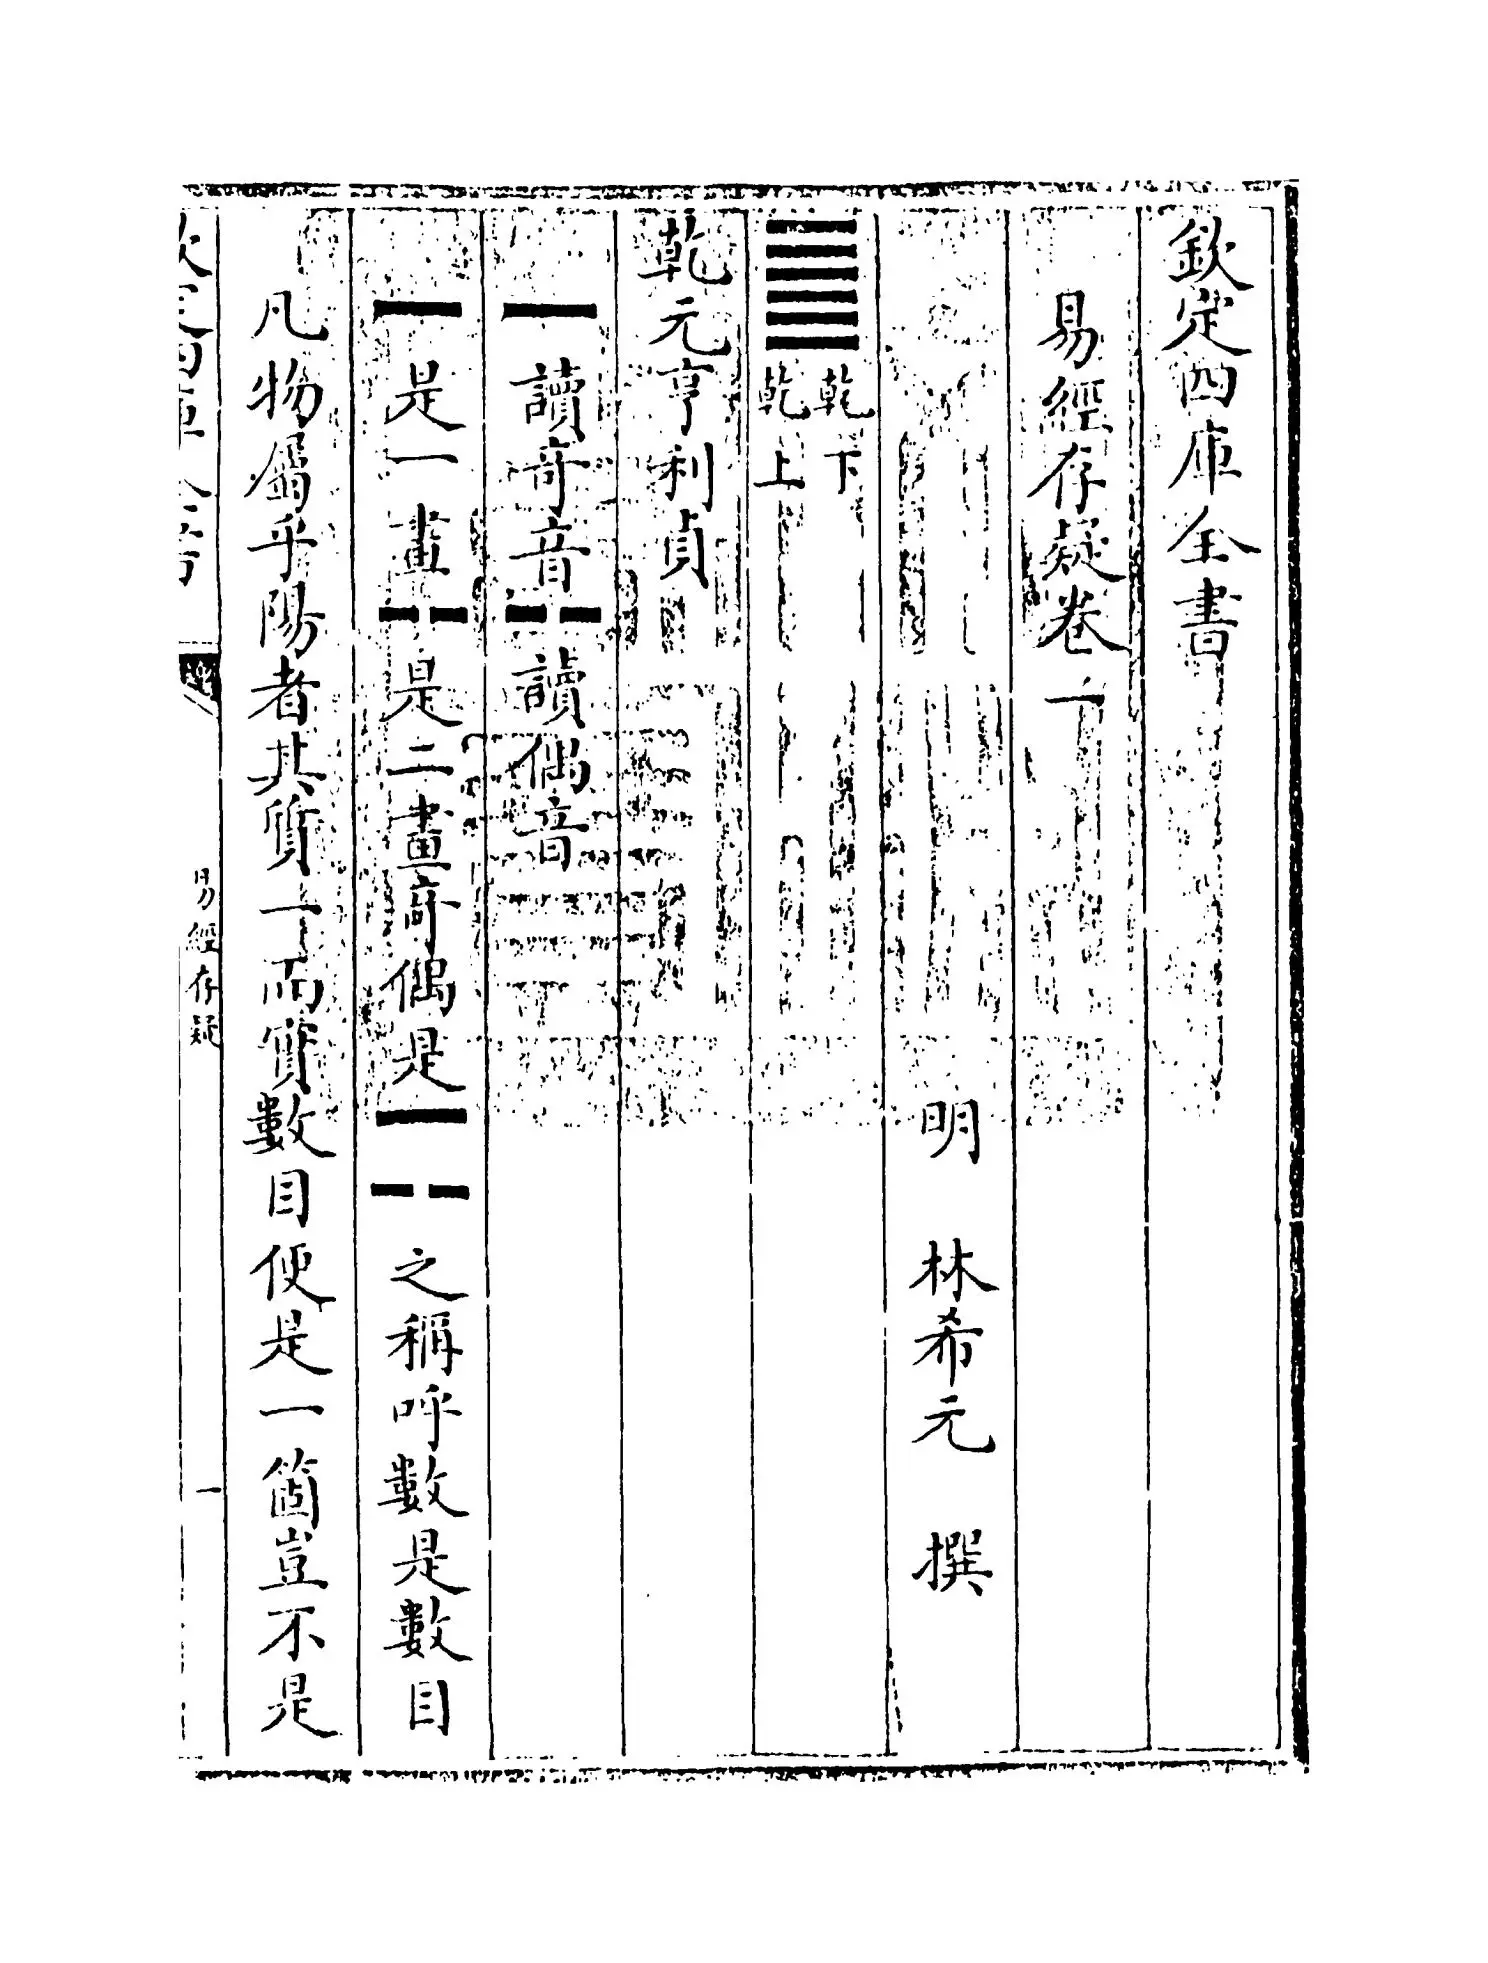 欽定四庫全書
易經存疑卷一
明 林希元 撰
䷀ 乾下 乾上
乾元亨利貞
⚊讀奇音⚋讀偶音
⚊是一畫⚋是二畫奇偶是⚊⚋之稱呼數是數目
凡物屬乎陽者其質一而實數目便是一箇豈不是
易經存疑 一